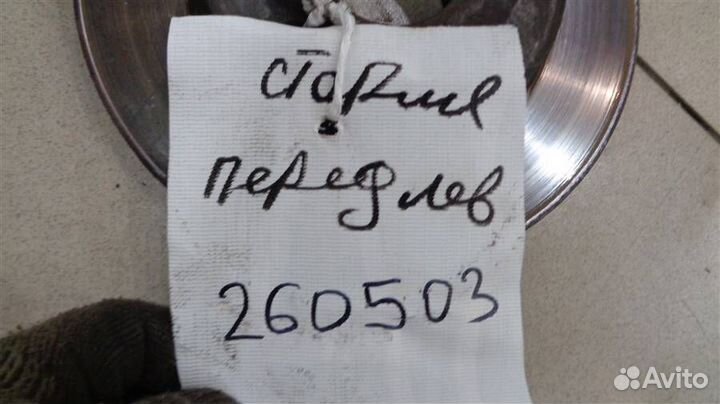 перед лев
260503
Avito